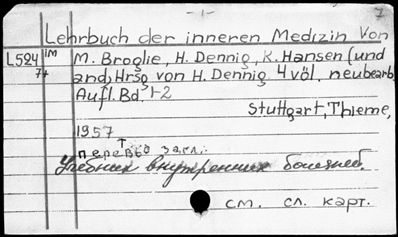 -1-
7
Lehrbuch der inneren Medizin Von
L524 im M. Broglie, H. Dennig, K. Hansen (und
7+ and) Hrsg von H. Dennig 4 völ. neubearb
Aufl. Bd. 1-2
Stuttgart, Thieme,
1957
перевод загл.:
Учебник внутренних болезней.
см. сл. карт.